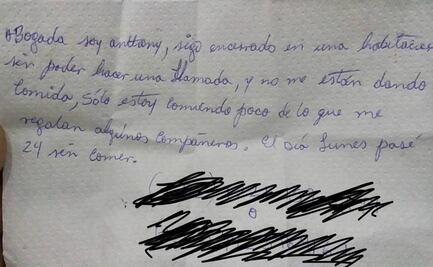 Abogada soy anthony, sigo encerrado en una habitacion
sin poder hacer una llamada, y no me están dando
comida, sólo estoy comiendo poco de lo que me
regalan algunos compañeros. El día Lunes pasé
24 sin comer.
o